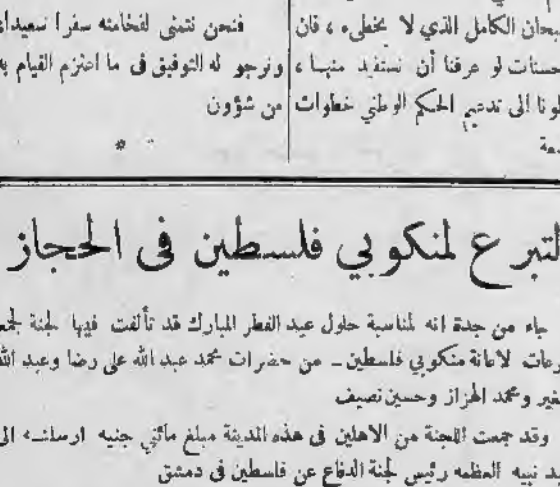 سبحان الكامل الذي لا يخطىء ، فان
حسنات لو عرفنا أن نستفيد منها ،
لونا الى تدعيم الحكم الوطني خطوات
فنحن نتمنى لفخامته سفرا سعيدا
ونرجو له التوفيق فى ما اعتزم القيام به
من شؤون
التبرع لمنكوبي فلسطين فى الحجاز
جاء من جدة انه لمناسبة حلول عيد الفطر المبارك قد تألفت فيها لجنة لجمع
لاعانة منكوبي فلسطين ــ من حضرات محمد عبد الله على رضا وعبد الله
ومحمد الهزاز وحسين نصيف
وقد جمعت اللجنة من الاهلين فى هذه المدينة مبلغ مائتي جنيه ارسلته الى
نبيه العظمه رئيس لجنة الدفاع عن فلسطين فى دمشق